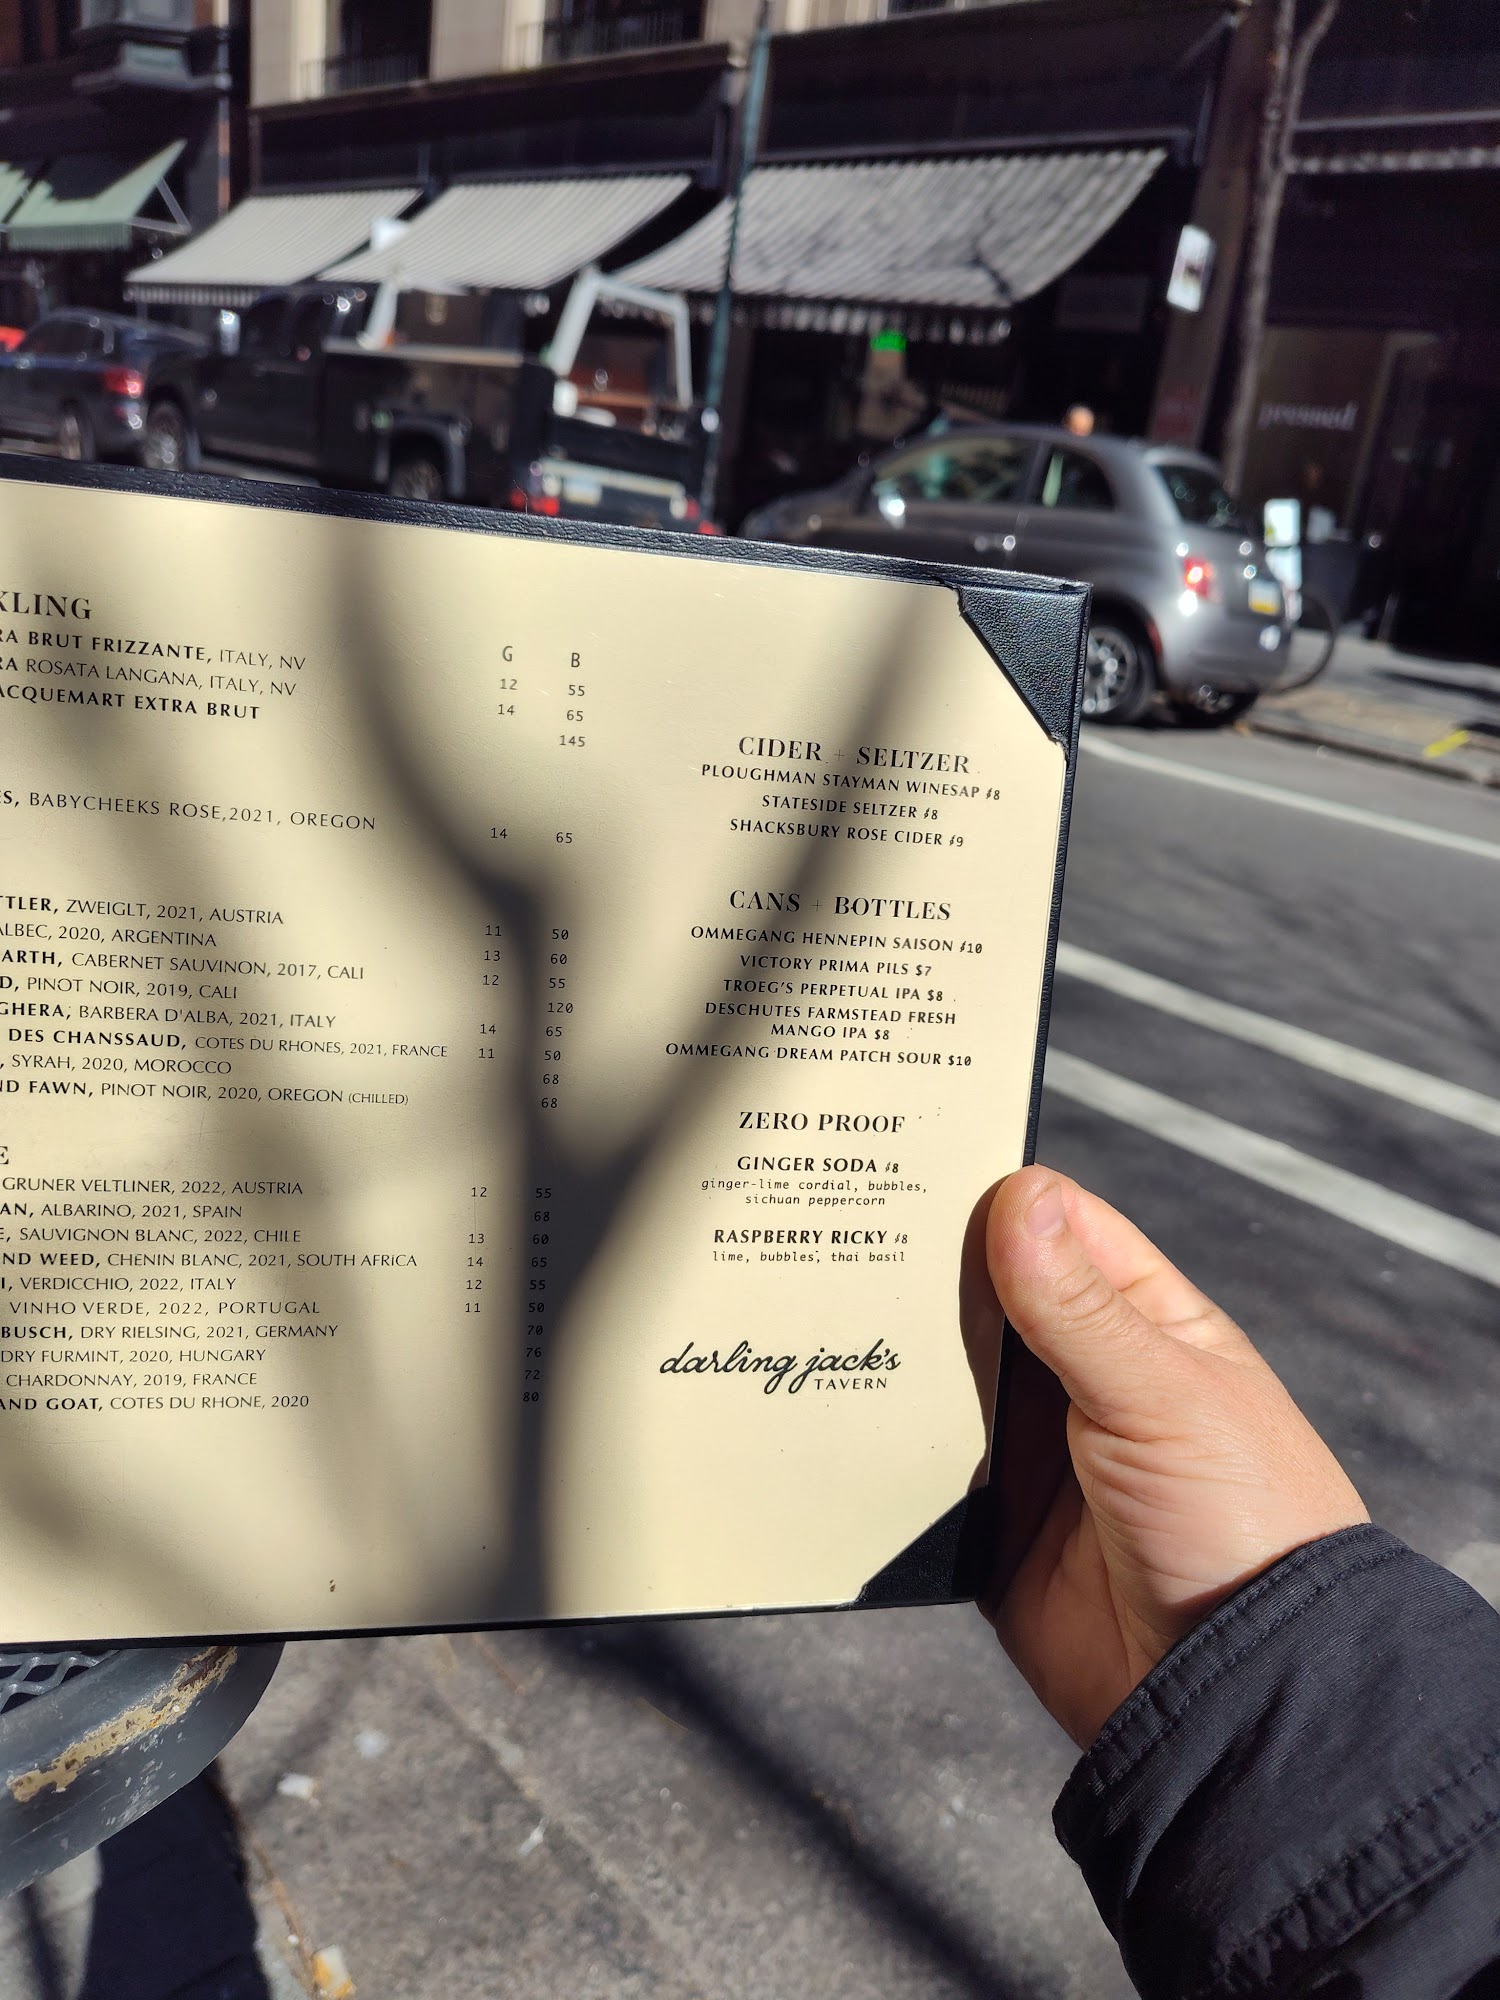 KLING
RA BRUT FRIZZANTE, ITALY, NV
RA ROSATA LANGANA, ITALY, NV
ACQUEMART EXTRA BRUT
G B
12 55
14 65
145
ES, BABYCHEEKS ROSE,2021, OREGON
14 65
TTLER, ZWEIGLT, 2021, AUSTRIA
ALBEC, 2020, ARGENTINA
ARTH, CABERNET SAUVINON, 2017, CALI
D, PINOT NOIR, 2019, CALI
GHERA, BARBERA D'ALBA, 2021, ITALY
DES CHANSSAUD, COTES DU RHONES, 2021, FRANCE
, SYRAH, 2020, MOROCCO
ND FAWN, PINOT NOIR, 2020, OREGON (CHILLED)
11 50
13 60
12 55
120
14 65
11 50
68
68
E
GRUNER VELTLINER, 2022, AUSTRIA
AN, ALBARINO, 2021, SPAIN
E, SAUVIGNON BLANC, 2022, CHILE
ND WEED, CHENIN BLANC, 2021, SOUTH AFRICA
I, VERDICCHIO, 2022, ITALY
VINHO VERDE, 2022, PORTUGAL
BUSCH, DRY RIELSING, 2021, GERMANY
DRY FURMINT, 2020, HUNGARY
CHARDONNAY, 2019, FRANCE
AND GOAT, COTES DU RHONE, 2020
12 55
68
13 60
14 65
12 55
11 50
70
76
72
80
CIDER + SELTZER
PLOUGHMAN STAYMAN WINESAP $8
STATESIDE SELTZER $8
SHACKSBURY ROSE CIDER $9
CANS + BOTTLES
OMMEGANG HENNEPIN SAISON $10
VICTORY PRIMA PILS $7
TROEG'S PERPETUAL IPA $8
DESCHUTES FARMSTEAD FRESH
MANGO IPA $8
OMMEGANG DREAM PATCH SOUR $10
ZERO PROOF
GINGER SODA $8
ginger-lime cordial, bubbles,
sichuan peppercorn
RASPBERRY RICKY $8
lime, bubbles, thai basil
darling jack's
TAVERN